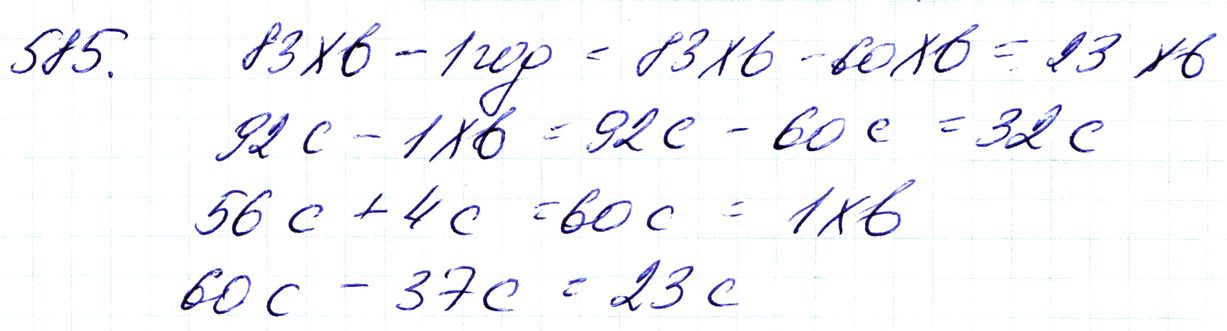 585. 83хв - 1год = 83хв - 60хв = 23 хв
92с - 1хв = 92с - 60с = 32с
56с + 4с = 60с = 1хв
60с - 37с = 23с